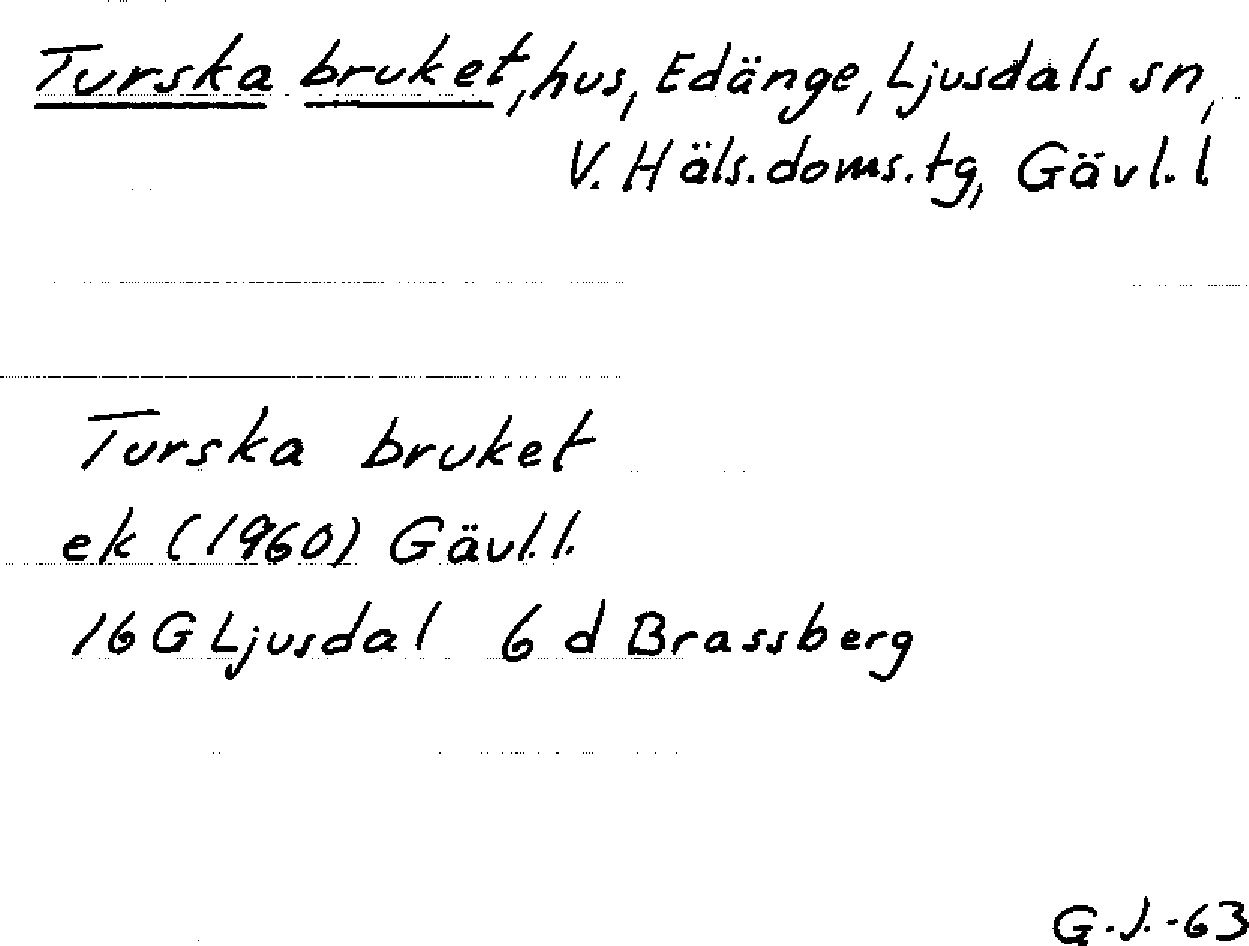 Turska bruket, hus, Edänge, Ljusdals sn,
V. Häls. doms. tg, Gävl. l
Turska bruket
ek (1960) Gävl. l.
16 G Ljusdal 6 d Brassberg
G. J. -63